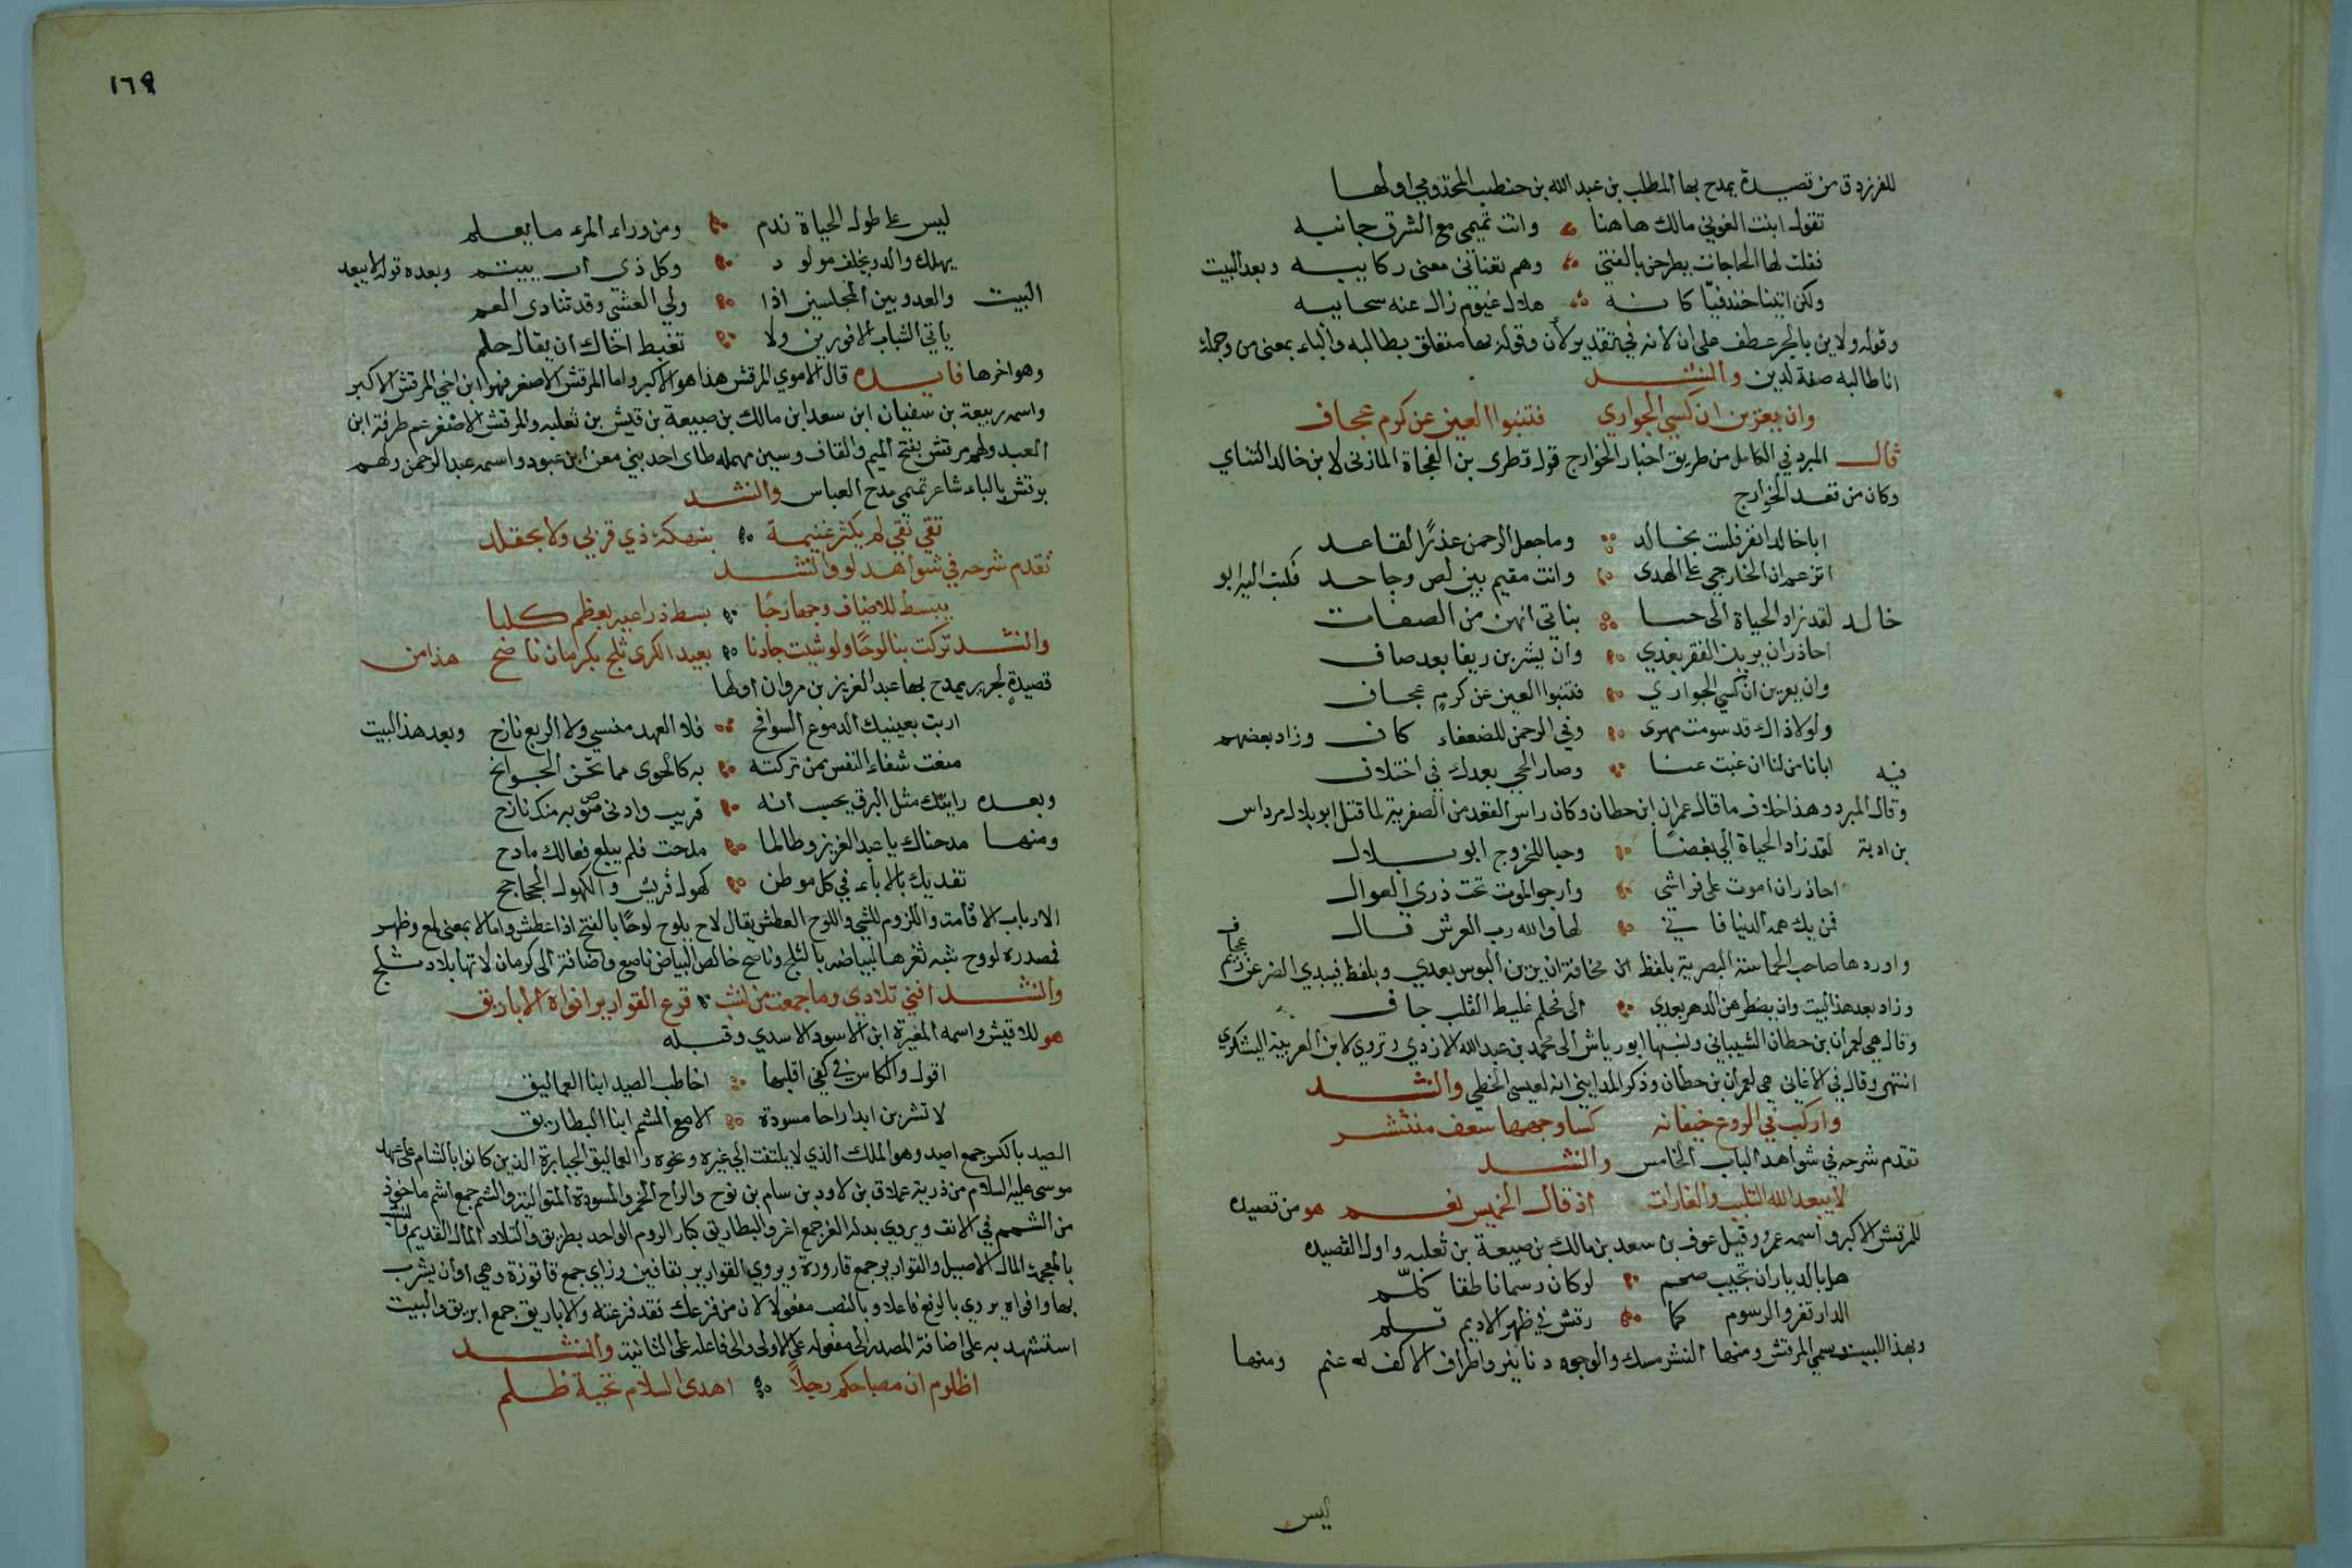 للفرزدق من قصيدة يمدح بها المطلب بن عبد الله بن حنطب المخزومي اولها
تقول ابنت الغوثي مالك هاهنا وانت تميمي مع الشرق جانبه
فقلت لها الحاجات يطرحن بالفتى وهم تعناني معنى ركايبه وبعد البيت
ولكن اتينا خندفيا كانه هلال غيوم زال عنه سحايبه
وقوله ولا دين بالجر عطف على ان لانه في تقدير لان وقوله بها متعلق بطالبه والباء بمعنى من وجملة
انا طالبه صفة لدين وانشد
وان يعزين ان كسي الجواري فتنبوا العين عن كرم عجاف
قال المبرد في الكامل من طريق اخبار الخوارج قول قطري بن الفجاة المازني لابن خالد القناي
وكان من قعد الخوارج
اباخالد انفر فلست بخالد وما جعل الرحمن عذرا لقاعد
اتزعم ان الخارجي على الهدى وانت مقيم بين لص وجاحد فكتب اليه ابو
خالد لقد زاد الحياة الى حبا بناتي انهن من الضعاف
احاذر ان يرين الفقر بعدي وان يشربن ريقا بعد صاف
وان يعرين ان كسي الجواري فتنبوا العين عن كرم عجاف
ولولا ذاك قد سومت مهري وفي الرحمن للضعفاء كاف وزاد بعضهم
فيه ابانا من لنا ان غبت عنا وصار الحي بعدك في اختلاف
وقال المبرد وهذا خلاف ما قال عمران ابن حطان وكان راس القعد من الصفرية لما قتل ابو بلال مرداس
بن ادية لقد زاد الحياة الي بغضا وحبا للخروج ابو بلال
احاذر ان اموت على فراشي وارجو الموت تحت ذرى العوال
فمن يك همه الدنيا فاني لها والله رب العرش قال
واوردها صاحب الحماسة البصرية بلفظ مخافة ان يرين البوس بعدي وبلفظ فيبدي الضر عن كرم عجاف
وزاد بعد هذا البيت وان يضطرهن الدهر بعدي الى فحل غليظ القلب جاف
وقال هي لعمران بن حطان الشيباني ونسبها ابو رياش الى محمد بن عبد الله الازدي وتروي لابن العربية اليشكري
انتهى وقال في الاغاني هي لعمران بن حطان وذكر المدايني انه لعيسى الخطي وانشد
واركب في الروع خيفانه كسا وجهها سعف منتشر
تقدم شرحه في شواهد الباب الخامس وانشد
لا يبعد الله التلبب والغارات اذ قال الخميس نعم هو من قصيده
للمرقش الاكبر واسمه عمرو وقيل عوف بن سعد بن مالك بن ضبيعة بن ثعلبه واول القصيده
هل بالديار ان تجيب صمم لو كان رسما ناطقا كلم
الدار قفر والرسوم كما رقش في ظهر الاديم قلم
وبهذا البيت سمي المرقش ومنها النشر مسك والوجوه دنانير واطراف الاكف له عنم ومنها
ليس
١٦٩
ليس على طول الحياة ندم ومن وراء المرء ما يعلم
يهلك والد ويخلف مولود وكل ذي اب ييتم وبعده قوله لا يبعد
البيت والعدو بين المجلسين اذا ولي العشي وقد تنادى العم
ياتي الشباب الاقورين ولا تغبط اخاك ان يقال حلم
وهو اخرها فايده قال الاموي المرقش هذا هو الاكبر واما المرقش الاصغر فهو ابن اخي المرقش الاكبر
واسمه ربيعة بن سفيان ابن سعد ابن مالك بن ضبيعة بن قيش بن ثعلبه والمرقش الاصغر عم طرفة ابن
العبد ولهم مرقش بفتح الميم والقاف وسين مهمله طاى احد بني معن ابن عبود واسمه عبد الرحمن ولهم
برقش بالباء شاعر تميمي مدح العباس وانشد
تقي نقي لم يكثر غنيمة بنهكة ذي قربى ولا بحقلد
تقدم شرحه في شواهد لو وانشد
يبسط للاضياف وجها رحبا بسط ذراعيه بعظم كلبا
وانشد تركت بنا لوحا ولو شيت جادنا بعيد الكرى ثلج بكرمان ناضح هذا من
قصيدة لجرير يمدح بها عبد العزيز بن مروان اولها
اربت بعينيك الدموع السوافح فلا العهد منسي ولا الربع نازح وبعد هذا البيت
منعت شفاء النفس ممن تركته به كالجوى مما تجن الجوانح
وبعده رايتك مثل البرق يحسب انه قريب وادنى صوبه منك نازح
ومنها مدحناك يا عبد العزيز وطالما مدحت فلم يبلغ فعالك مادح
تفديك بالاباء في كل موطن كهول قريش والكهول الجحاجح
الارباب الاقامة واللزوم للشي واللوح العطش يقال لاح يلوح لوحا بالفتح اذا عطش واما لا بمعنى لمع وظهر
فمصدره لووح شبه ثغرها لبياضه بالثلج وناصح خالص البياض ناصع واضافته الى كرمان لانها بلاد ثلج
وانشد افني تلادي وما جمعت من نشب قرع القوارير افواه الاباريق
هو للاقيش واسمه المغيرة ابن الاسود الاسدي وقبله
اقول والكاس في كفي اقلبها اخاطب الصيد ابنا العماليق
لا تشربن ابدا راحا مسودة الا مع الشم ابنا البطاريق
الصيد بالكسر جمع اصيد وهو الملك الذي لا يلتفت الى غيره ونحوه والعماليق الجبابرة الذين كانوا بالشام على عهد
موسى عليه السلام من ذرية عملاق بن لاود بن سام بن نوح والراح الخمر والمسودة المتوالية والشم جمع اشم ماخوذ
من الشمم في الانف ويروي بدله الغر جمع اغر والبطاريق كبار الروم الواحد بطريق والتلاد المال القديم والنشب
بالمعجمة المال الاصيل والقوارير جمع قارورة ويروي القوازيز بقافين وزاي جمع قاقوزة وهي اوان يشرب
بها وافواه يروي بالرفع فاعلا وبالنصب مفعولا لان من قرعك فقد قرعته والاباريق جمع ابريق والبيت
استشهد به على اضافة المصدر الى مفعوله على الاولى والى فاعله على الثانية وانشد
اظلوم ان مصابكم رجلا اهدى السلام تحية ظلم